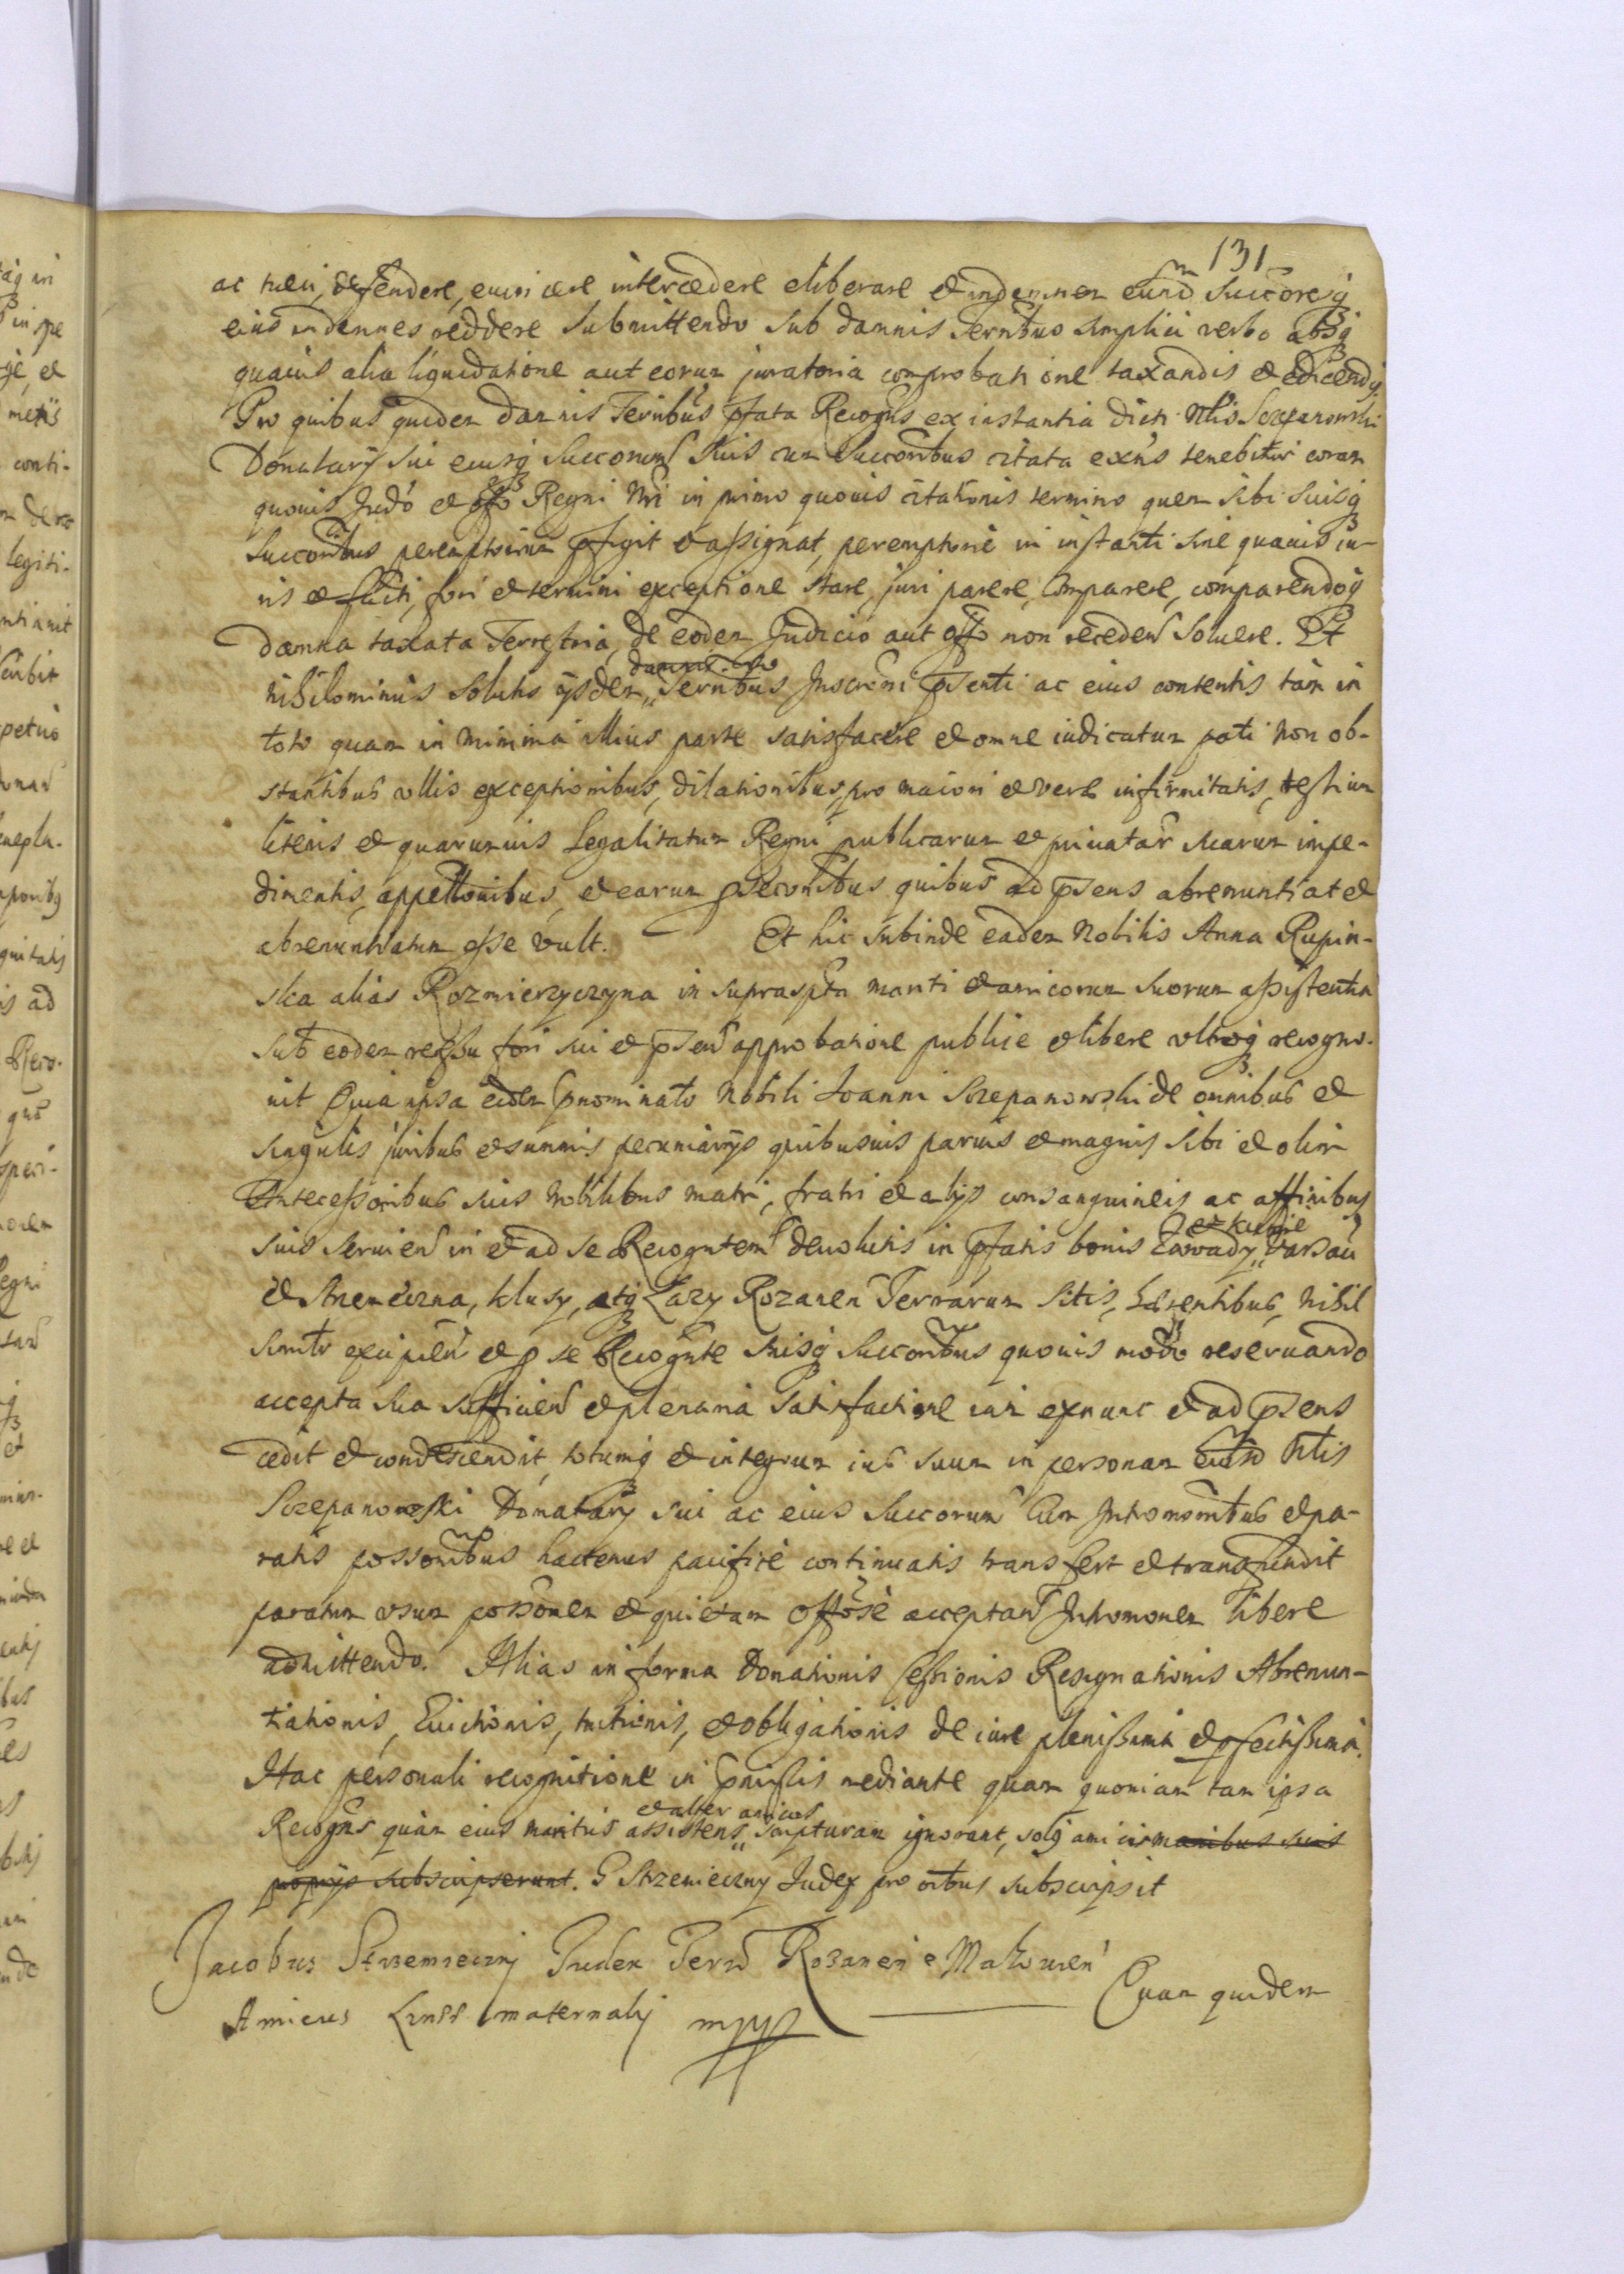 131
ac tueri, defendere, euincere intercedere eliberare et indemnem eund Succoresq
eius indemnes reddere Submittendo sub damnis Terribus simplici verbo absq
quauis alia liquidatione aut eorum juratoria comprobatione taxandis et edicendis
Pro quibus quidem damnis Terribus pfata Recogns ex instantia dicti Nblis Sczepanowski
Donatarÿ sui eiusq Succorum Suis cum Succoribus citata exns tenebitur coram
quouis Judo et offo Regni Nri in primo quouis citationis termino quem sibi suisq
Succoribus peremptorium pfigit et assignat, peremptorie in instanti sine quauis iu-
ris et facti, fori et termini exceptione stare, juri parere, comparere, comparendoq
damna taxata Terrestria, de eodem Judicio aut offo non receden soluere. Et
nihilominus solutis ÿsdem Terribus Inscrioni psenti ac eius contentis tam in
toto quam in minima illius parte satisfacere et omne iudicatum pati non ob-
stantibus vllis exceptionibus, dilationibus, pro maiori et vera infirmitatis, testium
literis et quarumuis Legalitatum Regni publicarum et priuatar suarum impe-
dimentis, appellonibus, et earum psecoribus quibus ad psens abrenuntiat et
abrenuntiatum esse vult. Et hic subinde eadem Nobilis Anna Rupin-
ska alias Rozmierzyczyna in supraspta mariti et amicorum suorum assistentia
sub eodem recessu fori sui et psen approbatione publice et libere vltroq recogno-
uit Quia ipsa eidem pnominato Nobili Joanni Sczepanowski de omnibus et
singulis juribus et summis pecuniarÿs quibusuis paruis et magnis sibi et olim
Antecessoribus suis Nobilibus matri, fratri et alÿs consanguineis ac affinibus
suis seruien in et ad se Recogntem deuolutis in pfatis bonis Zawady
et Strzemieczna, Klusy, atq Lazy Rozanen Terrarum Sitis, habentibus, nihil
excipien et p se Recognte suisq Succoribus quouis modo reseruando
accepta sua sufficien et plenaria satisfactione iam exnunc et ad psens
cedit et condescendit, totumq et integrum ius suum in personam eiusd Nblis
Sczepanowski Donatarÿ sui ac eius Succorum cum Intromonibus et pa-
ratis possonibus hactenus pacifice continuatis transfert et transfundit
paratum vsum possonem et quietam offose acceptan Intromonem libere
admittendo. Alias in forma Donationis Cessionis Resignationis Abrenun-
tiationis, Euictionis, tuitionis, et obligationis de iure plenissima et pfectissima.
Hac personali recognitione in pmissis mediante quam quoniam tam ipsa
et alter amicus
Recogns quam eius maritus assistens scripturam ignorant, solq amicus manibus suis
proprÿs subscripserunt. G Strzemieczny Judex pro oibus subscripsit
Jacobus Strzemieczny Judex Terrs Rozanen e Makouien
Quam quidem
Amicus maternalis mpp